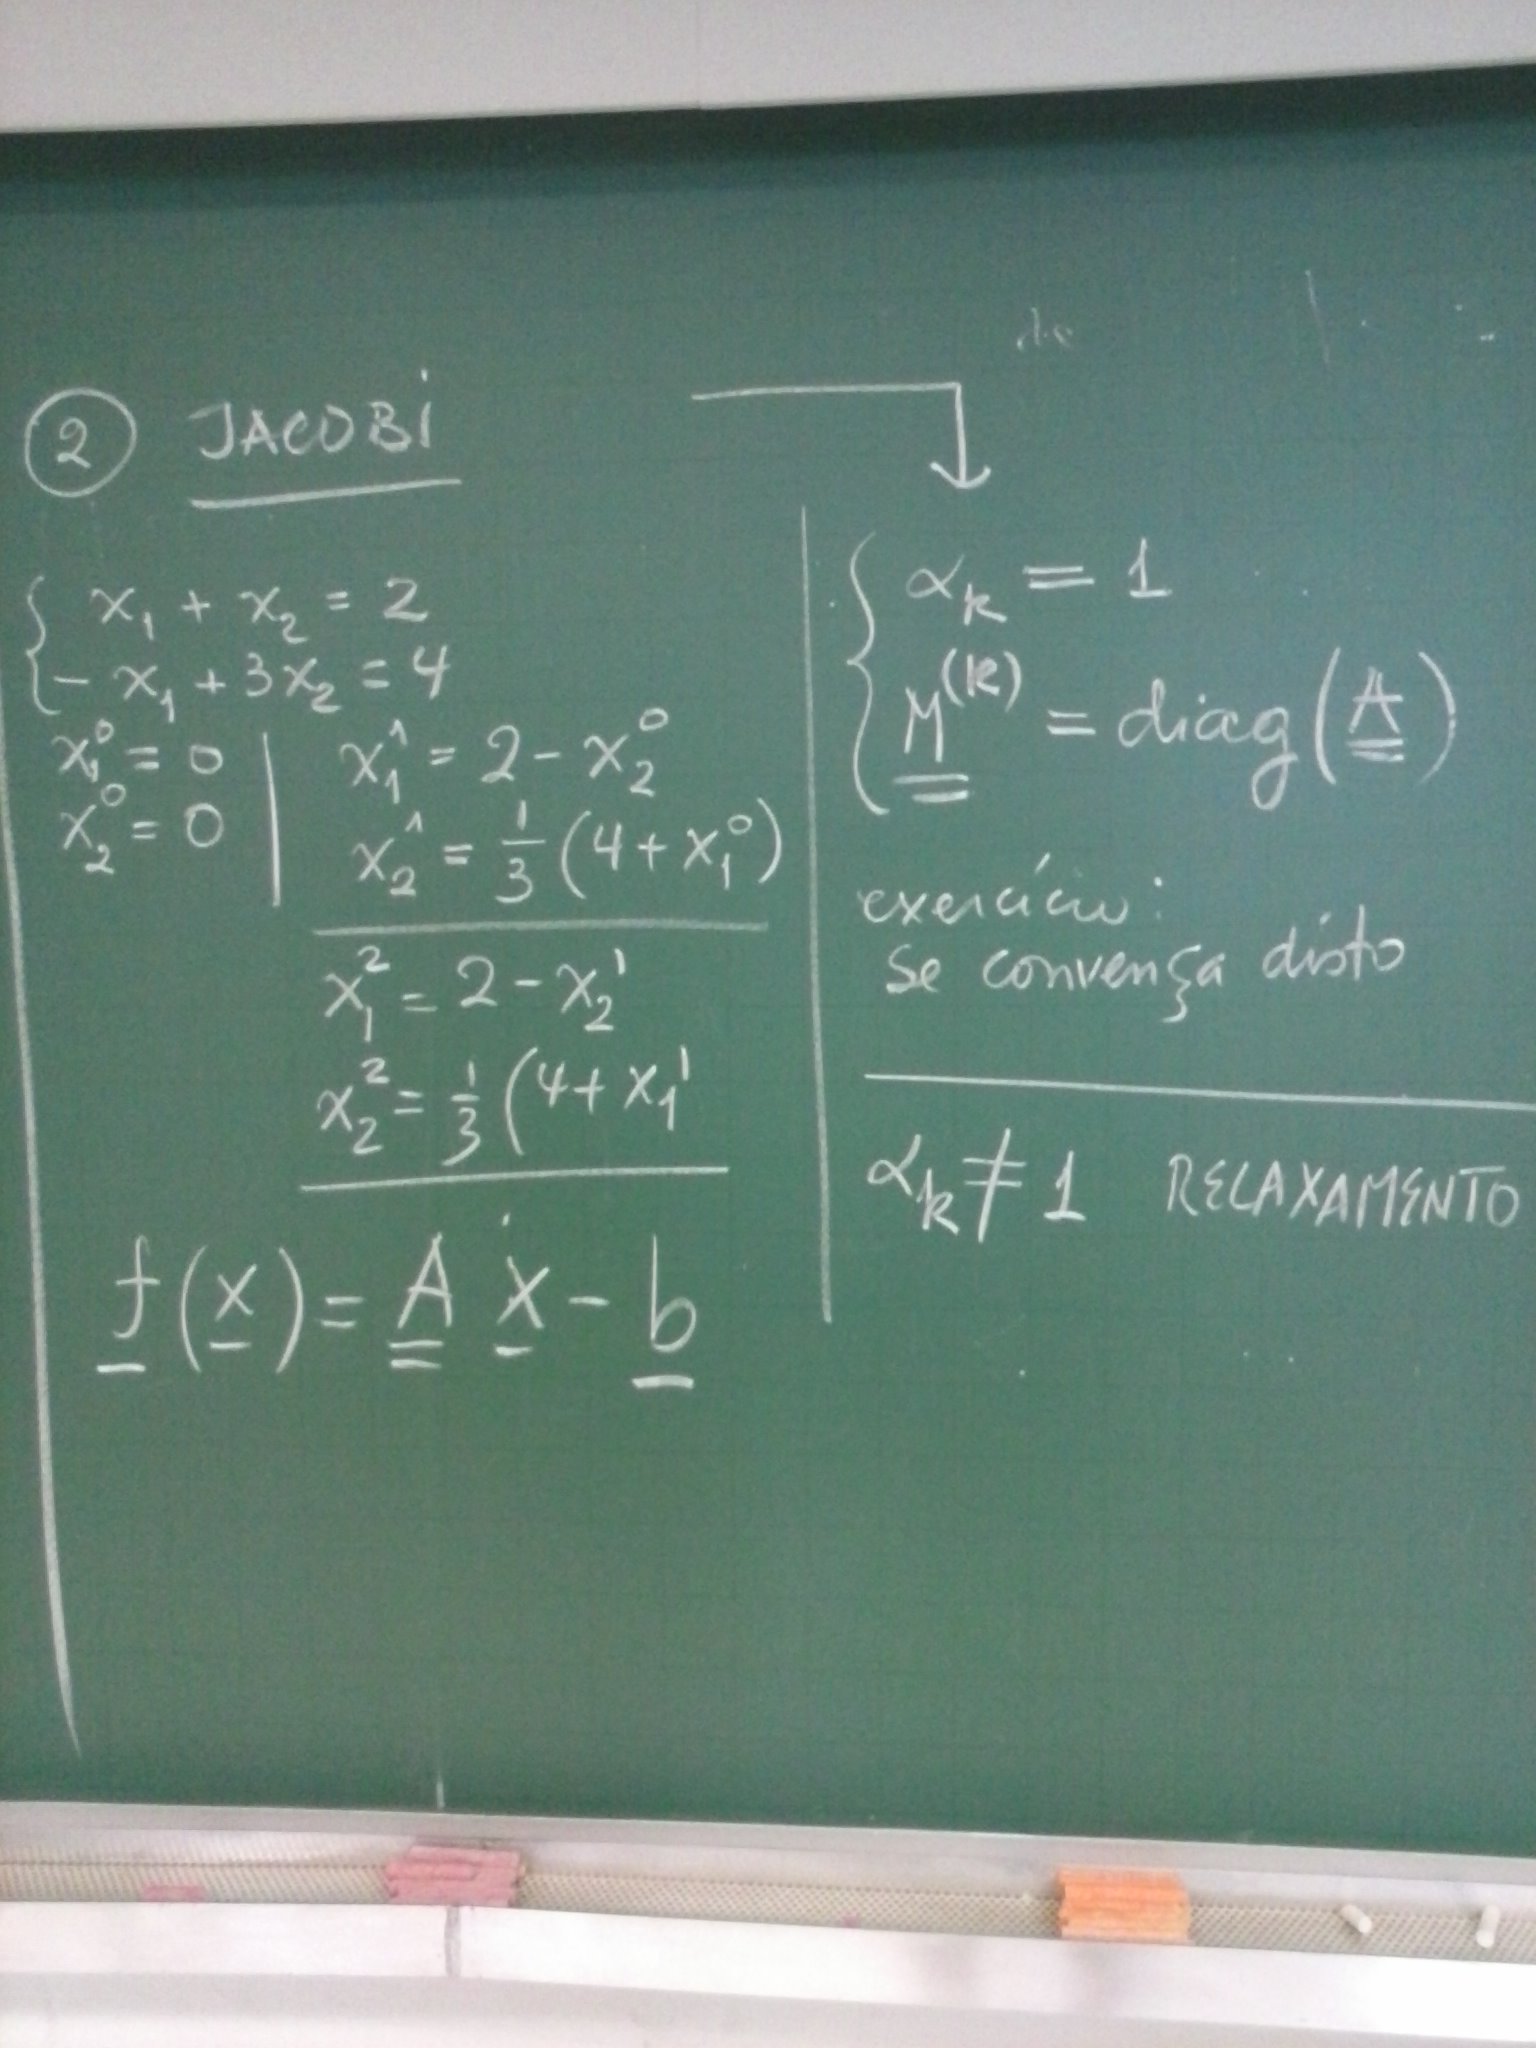 ② JACOBI
x₁ + x₂ = 2
- x₁ + 3x₂ = 4
x₁⁰ = 0
x₂⁰ = 0
x₁¹ = 2 - x₂⁰
x₂¹ = 1/3 (4 + x₁⁰)
x₁² = 2 - x₂¹
x₂² = 1/3 (4 + x₁¹
f(x) = A x - b
αₖ = 1
M⁽ᵏ⁾ = diag(A)
exercício:
se convença disto
αₖ ≠ 1 RELAXAMENTO